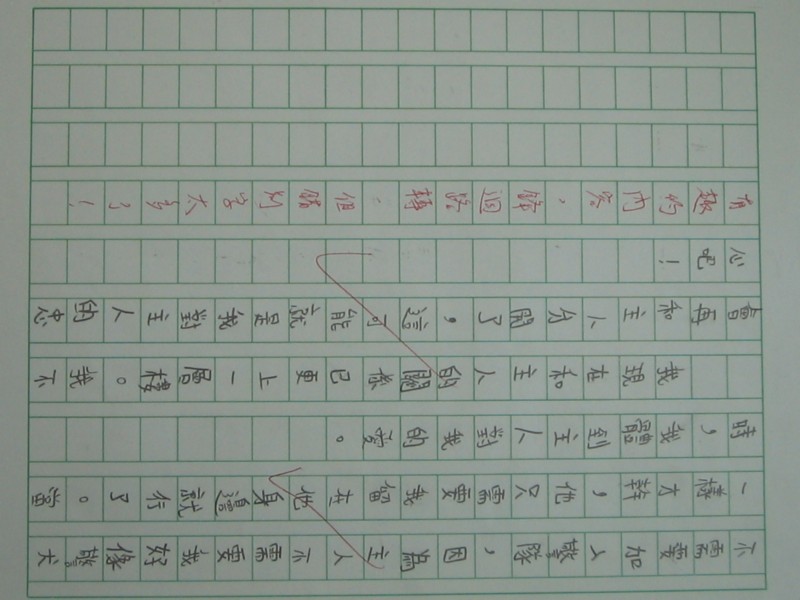 不需要加入警隊，因為主人不需要我好像警犬
一樣才幹，他只需要我留在他身邊就行了。當
時，我體到主人對我的愛。
我現在和主人的關係已更上一層樓。我不
會再和主人分開了，這可能就是我對主人的忠
心吧！
有趣的內容，峰迴路轉，但錯別字太多了！